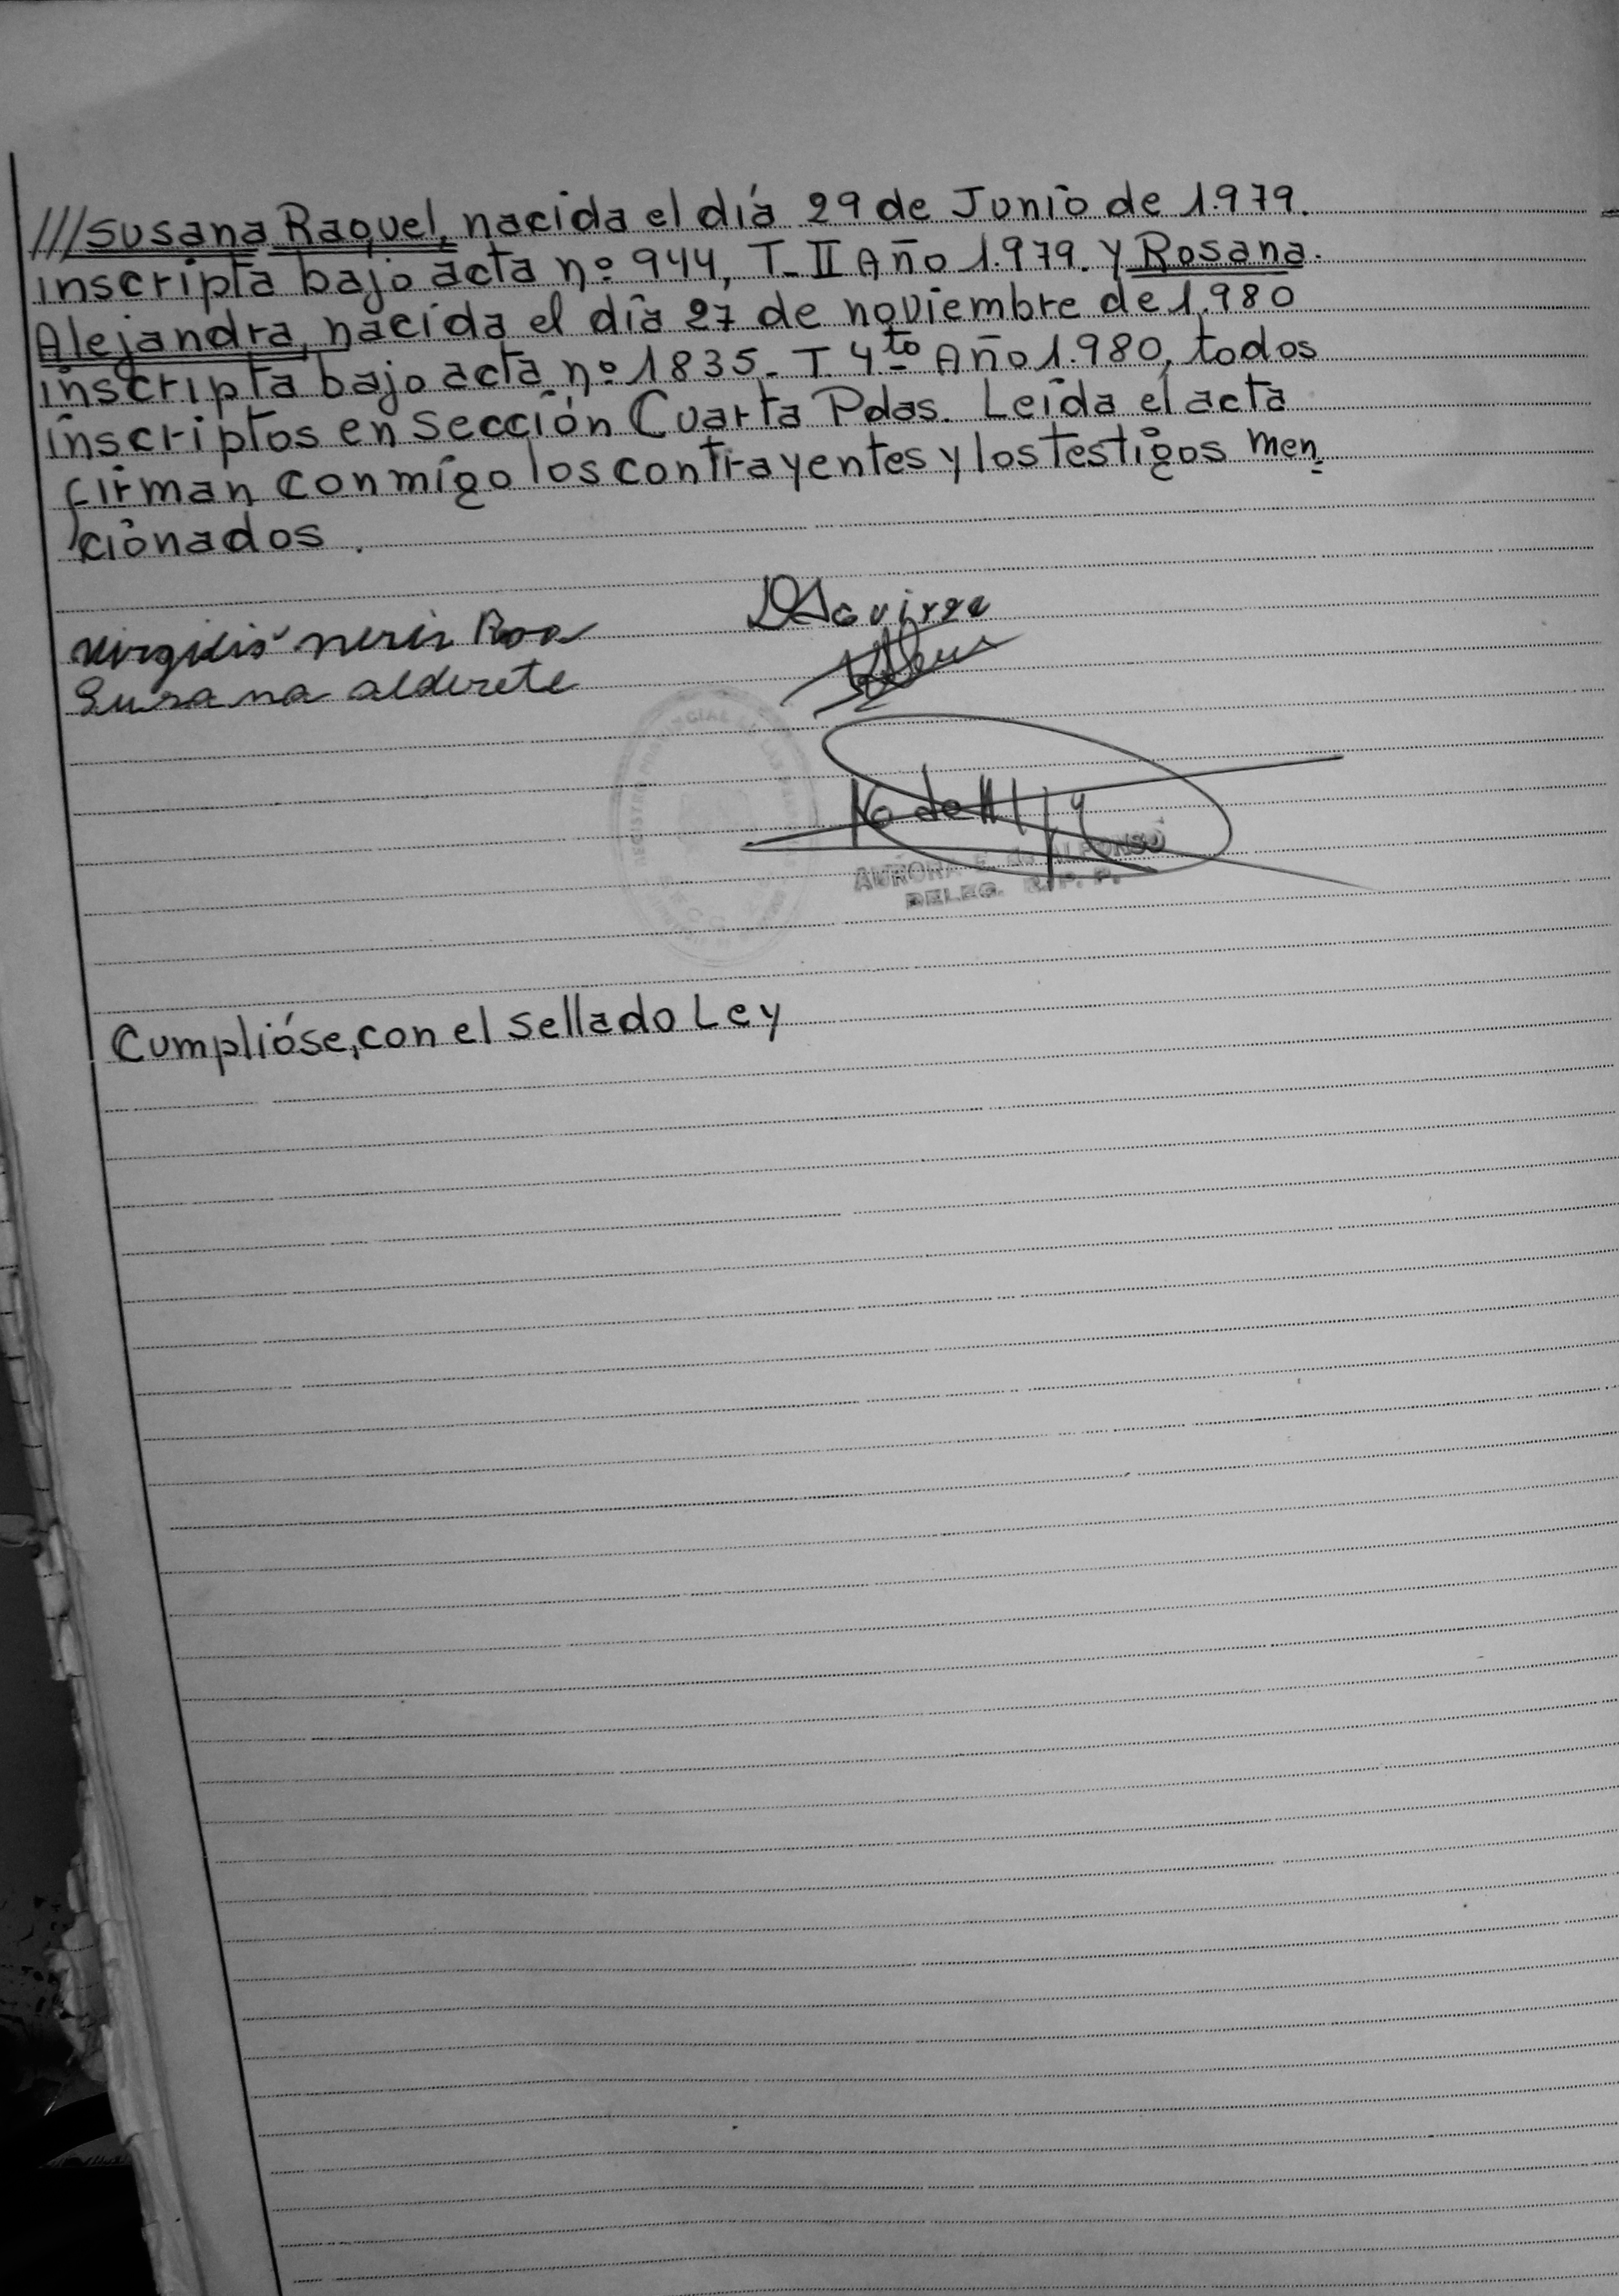 ///Susana Raquel, nacida el día 29 de Junio de 1.979.
inscripta bajo acta nº 944, T-II Año 1.979. y Rosana.
Alejandra, nacida el día 27 de noviembre de 1.980
inscripta bajo acta nº 1835- T. 4to Año 1.980, todos
inscriptos en Sección Cuarta Pdas. Leída el acta
firman conmigo los contrayentes y los testigos men
cionados.
Virgilio neris Roa
DAguirre
Susana alderete
AURORA E. de ALFONSO
DELEG. R. P. P.
Cumplióse, con el sellado Ley